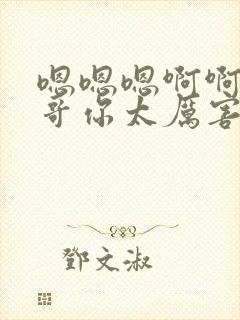 嗯嗯嗯啊啊
哥你太厲害
鄧文淑